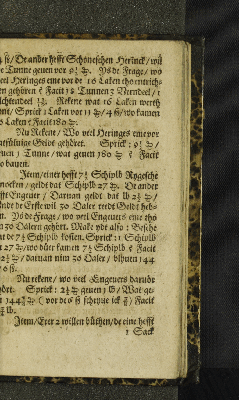 4 ß/ De ander hefft Schönschen Herinck/ wil
e Tunne geuen vor 9½ . Js de Frage/ wo
eel Heringes eme vor de 16 Laken thoentrich-
en gehören? Facit 18 Tunnen 1 Verndeel/ 1
Rekene wat 16 Laken werth
Sprick: 1 Laken vor 11 / 4 ß/ wo kamen
6 Laken? Facit 180
Nu Rekene/ Wo veel Heringes eme vor
Geldt gehöret. Sprick: 9½
euen 1 Tunne/ wat geuen 180 ? Facit
o bauen.
Jtem/ einer hefft 7½ Schiplb Rygesche
nocken/ geldt dat Schiplb 27 . De ander
fft Engeuer/ Daruan geldt dat lb 2½ /
Vnde de Erste wil 30 Daler redt Geldt heb-
n. Js de Frage/ wo veel Engeuers eme tho
n 30 Dalern gehört. Make ydt also: Besehe
at de 7½ Schiplb kosten. Sprick: 1 Schiplb
r 27 / wo düer kamen 7½ Schiplb? Facit
/ daruan nim 30 Daler/ blyuen 144
ß.
Nu rekene/ wo veel Engeuers daruör
hört. Sprick: 2½ geuen 1 lb/ Wat ge-
n 144 (vor de 6 ß schryue ick ) Facit
lb.
Jtem/ Erer 2 willen büthen/ de eine hefft
1 Sack